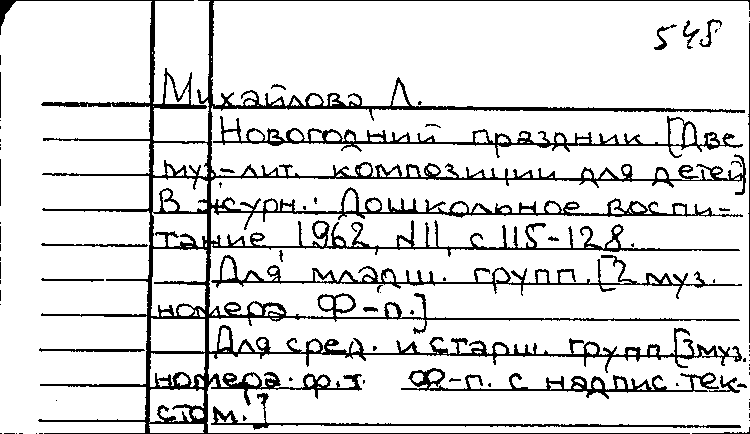 548
Михайлова, Л.
Новогодний праздник. [Две
муз-лит. композиции для детей]
В журн.: Дошкольное воспи-
тание, 1962, N11, с 115-128.
Для младш. групп. [2 муз.
номера. Ф-п.]
Для сред. и старш. групп [3 муз.
номера. ф.т. Ф-п. с надпис. тек-
стом.]